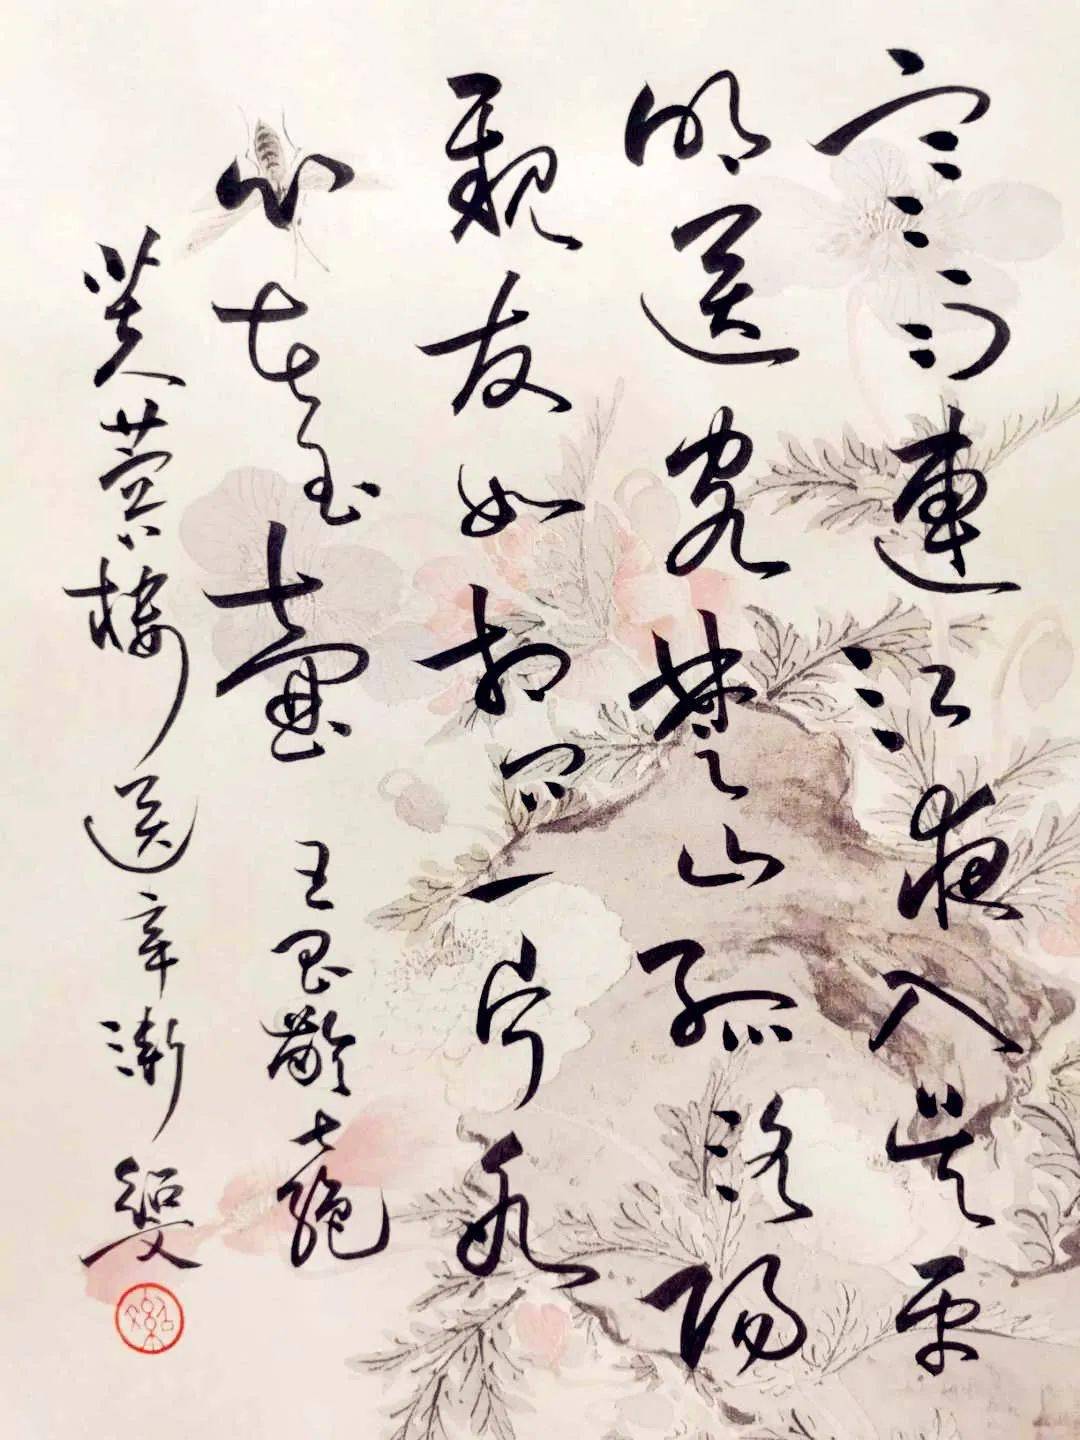 寒雨連江夜入吳平
明送客楚山孤洛陽
親友如相問一片氷
心在玉壺 王昌齡七絕
芙蓉樓送辛漸